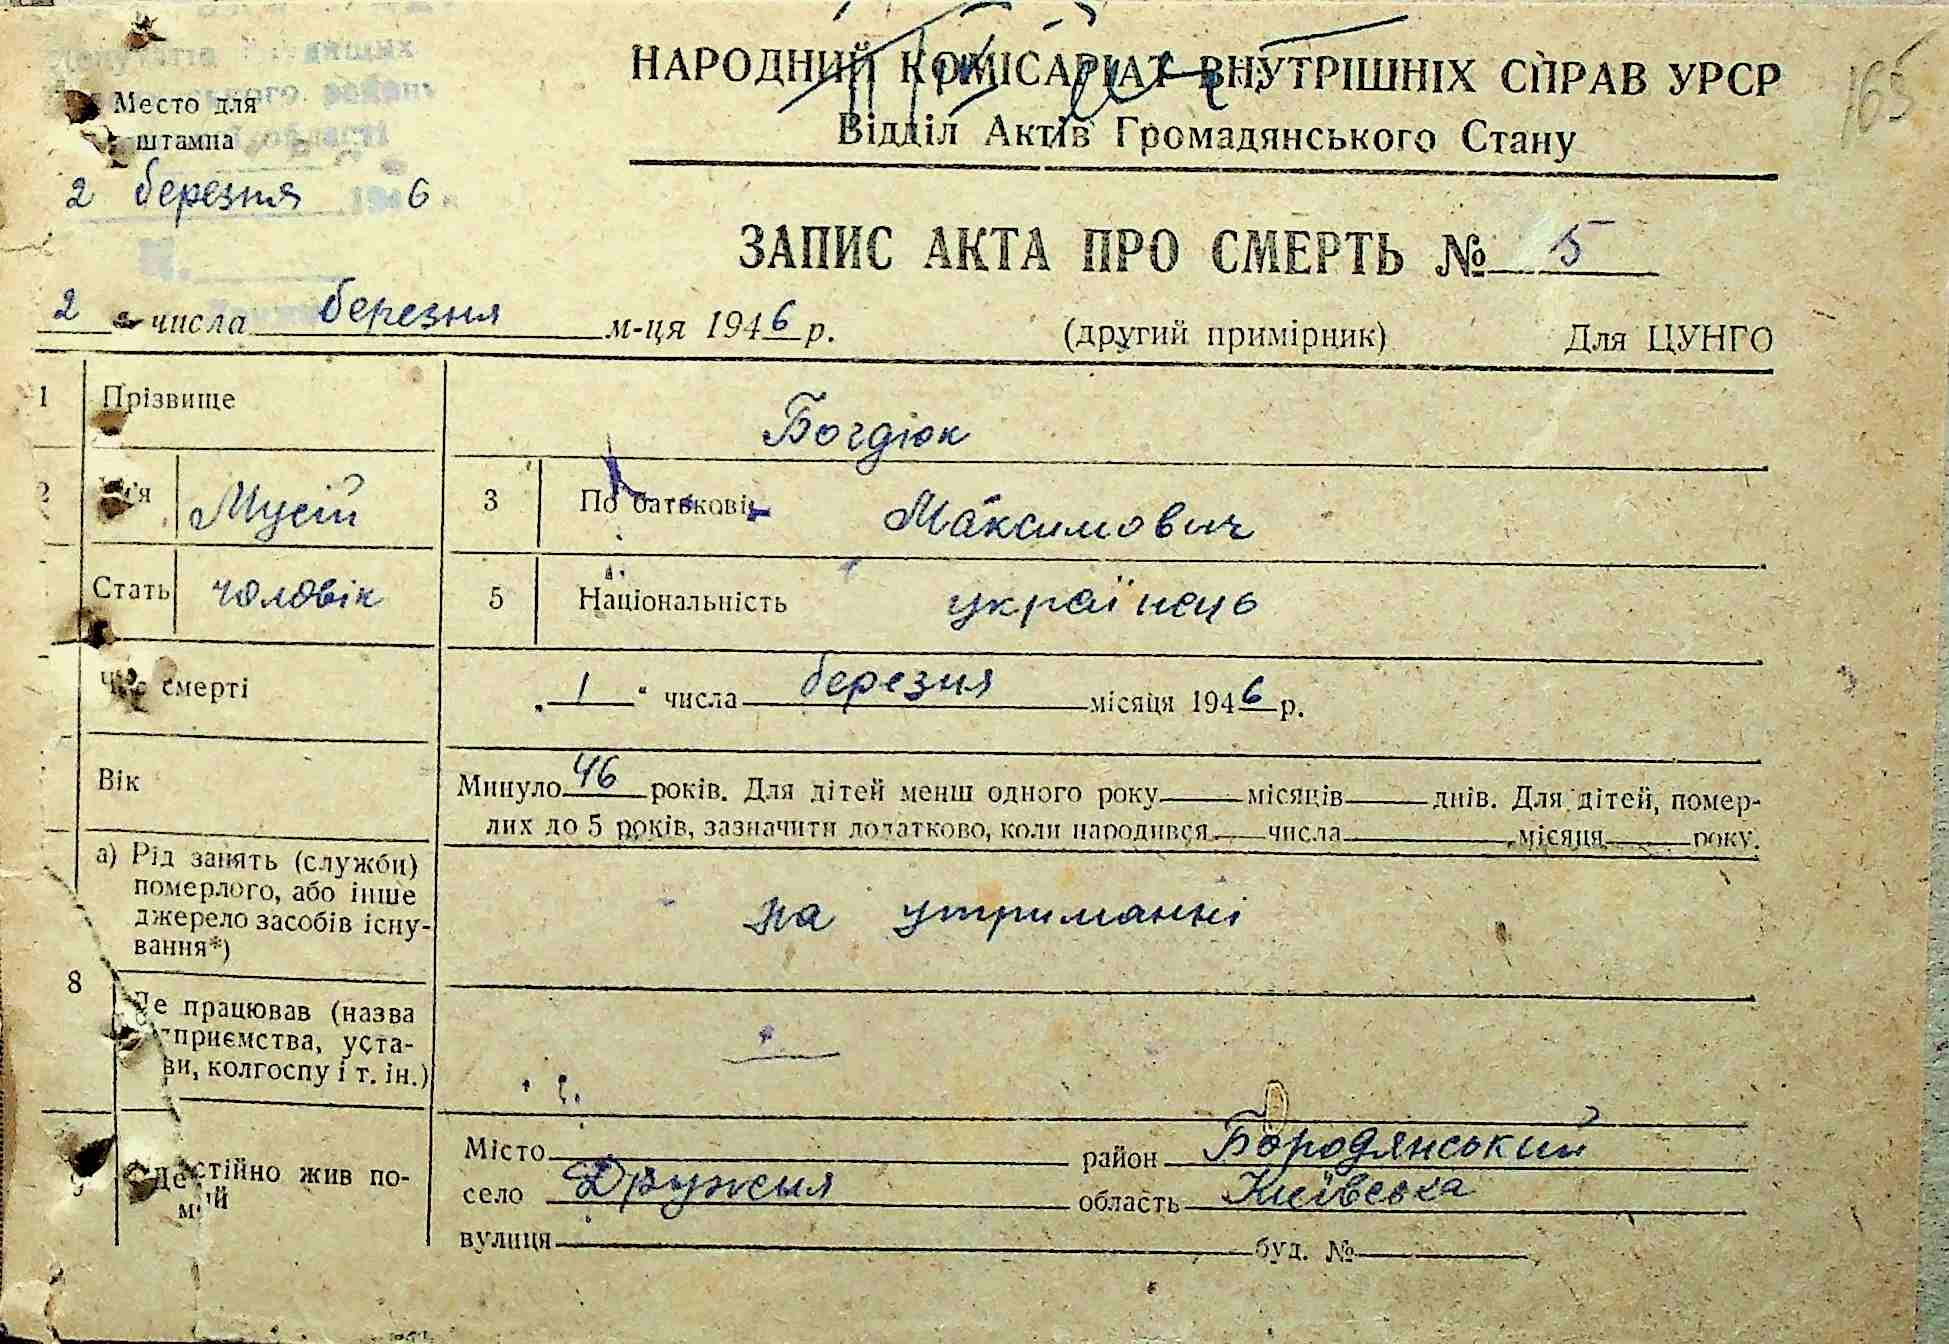 НАРОДНИЙ КОМІСАРІАТ ВНУТРІШНІХ СПРАВ УРСР
165
Відділ Актів Громадянського Стану
Место для
штампа
області
2 березня 1946
ЗАПИС АКТА ПРО СМЕРТЬ № 5
2 числа березня м-ця 1946 р. (другий примірник) Для ЦУНГО
1 Прізвище Богдіюк
2 Ім'я Мусій 3 По батькові Максимович
Стать чоловік 5 Національність українець
Час смерті „1“ числа березня місяця 1946 р.
Вік Минуло 46 років. Для дітей менш одного року місяців днів. Для дітей, помер-
лих до 5 років, зазначити додатково, коли народився числа місяця року.
8 а) Рід занять (служби)
померлого, або інше
джерело засобів існу-
вання*) на утриманні
Де працював (назва
підприємства, уста-
ви, колгоспу і т. ін.) —
9 Де постійно жив по-
мерлий
Місто район Бородянський
село Дружня область Київська
вулиця буд. №